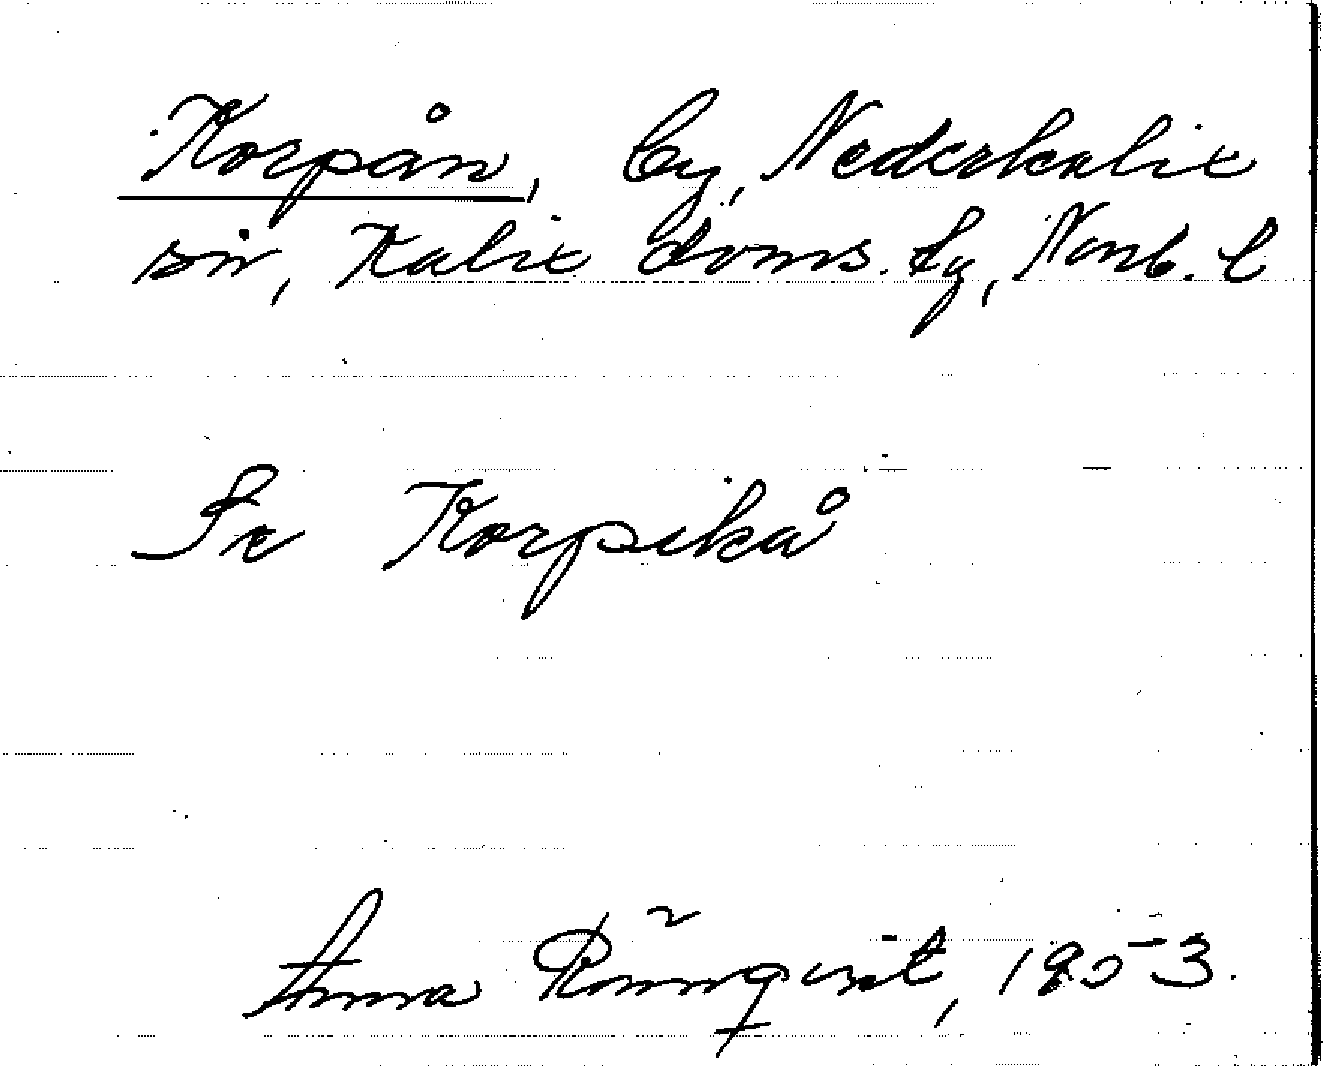 Korpån, by, Nederkalix
sn, Kalix doms. by, Norrb. l
Se Korpikå
Anna Rönnqvist, 1953.